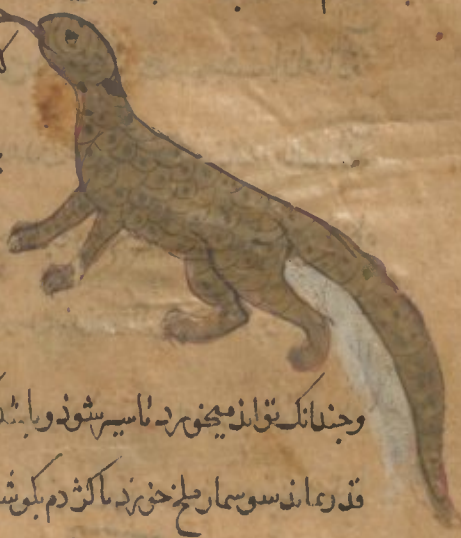 وجندانک تواند میخورد تا سیر شوذ و باشد
قدر بماند سوسمار ملخ خورذ با کژدم بکوشد